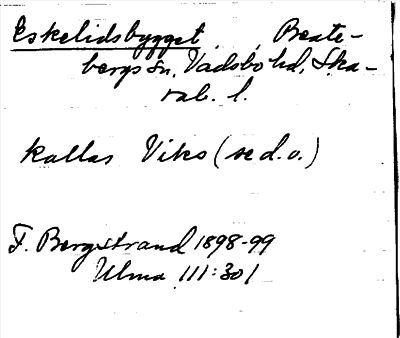 Eskelidsbygget, Beate-
bergs sn, Vadsbo hd, Ska-
rab. l.
kallas Viks (se d. o.)
F. Bergstrand 1898-99
Ulma 111:301